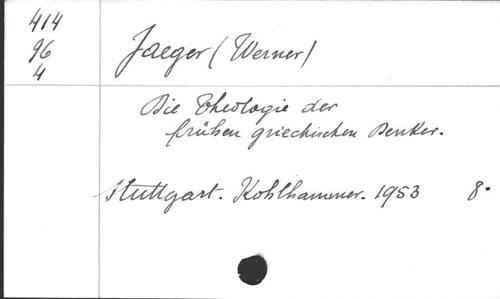 414
96
4
Jaeger (Werner)
Die Theologie der
frühen griechischen Denker.
Stuttgart. Kohlhammer. 1953 8°